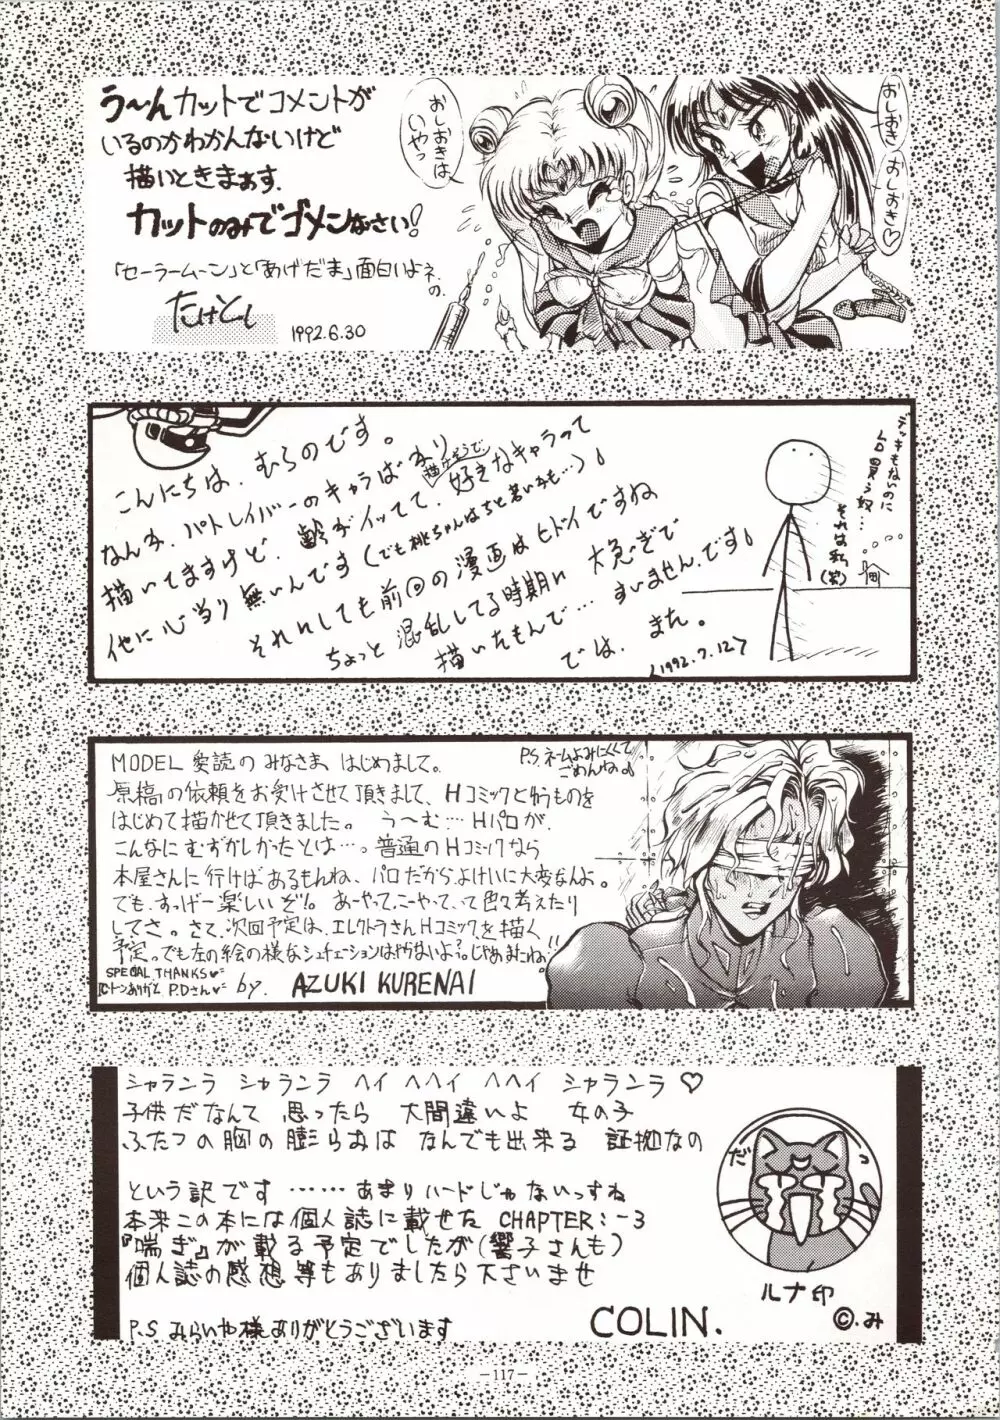 う〜んカットでコメントが
いるのかわかんないけど
描いときまぁす.
カットのみでゴメンなさい!
「セーラームーン」と「あげだま」面白いよネ.
の.
たけとし
1992.6.30
おしおきは
いやっ
おしおき おしおき♡
こんにちは、むらのです。
なんか、パトレイバーのキャラばかり
描いてますけど、齢がイッてて、好きなキャラって
他に心当り無いんです(でも桃ちゃんはちと若いかも…)♪
それにしても前回の漫画はヒドイですね
ちょっと混乱してる時期に大急ぎで
描いたもんで… すいません、です♪
では、また。
<1992.7.12>
買う奴…
それは私(笑)
MODEL 愛読のみなさま、はじめまして。
原稿の依頼をお受けさせて頂きまして、Hコミックと伺うものを
はじめて描かせて頂きました。う〜む…Hパロが、
こんなにむずかしかったとは…。普通のHコミックなら
本屋さんに行けばあるもんね、パロだからよけいに大変なんよ。
でも、すっげー楽しいぞ!。あーやって、こーやって、って色々考えたり
してさ。さて、次回予定は、エレクトラさんHコミックを描く
予定。でも左の絵の様なシチュエーションはやらないよう。じゃあみたね!!
SPECIAL THANKS♥
トーンありがと P.Dさん♥ by. AZUKI KURENAI
P.S ネームよみにくくて
ごめんね。
シャランラ シャランラ ヘイ ヘヘイ ヘヘイ シャランラ ♡
子供だなんて 思ったら 大間違いよ 女の子
ふたつの胸の膨らみは なんでも出来る 証拠なの
という訳です ……あまりハードじゃないっすね
本来この本には個人誌に載せた CHAPTER:-3
『喘ぎ』が載る予定でしたが(響子さんも)
個人誌の感想等もありましたら下さいませ
P.S みらいや様ありがとうございます
COLIN.
だ
ルナ印
©.み
—117—